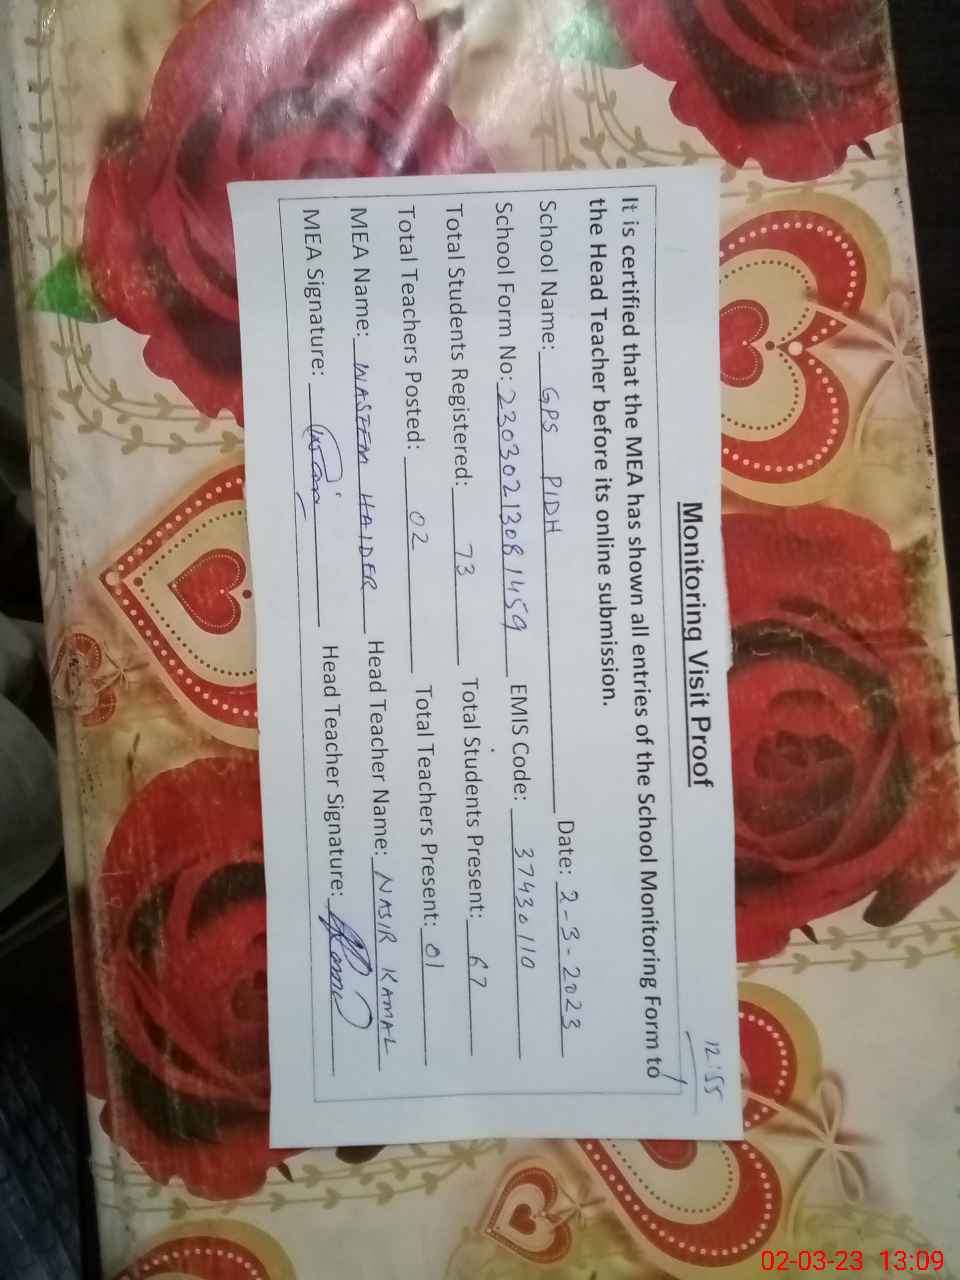 12:55
Monitoring Visit Proof
It is certified that the MEA has shown all entries of the School Monitoring Form to
the Head Teacher before its online submission.
School Name: GPS PIDH Date: 2-3-2023
School Form No: 23030213081459 EMIS Code: 37430110
Total Students Registered: 73 Total Students Present: 67
Total Teachers Posted: 02 Total Teachers Present: 01
MEA Name: WASEEM HAIDER Head Teacher Name: NASIR KAMAL
MEA Signature: Head Teacher Signature:
02-03-23 13:09